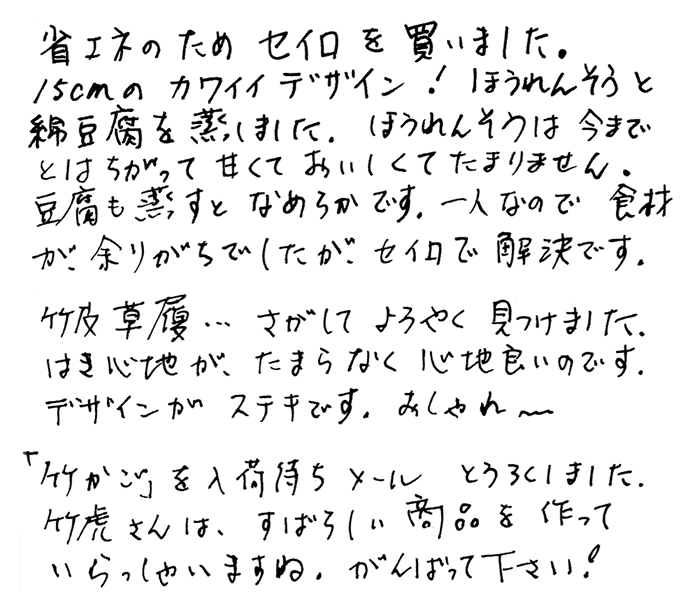 省エネのため セイロを買いました。
15cmの カワイイ デザイン! ほうれんそうと
綿豆腐を蒸しました。ほうれんそうは今まで
とはちがって 甘くて おいしくてたまりません。
豆腐も蒸すと なめらかです。一人なので 食材
が、余りがちでしたが、セイロで解決です。
竹皮草履… さがして ようやく 見つけました。
はき心地が、たまらなく 心地良いのです。
デザインが ステキです。おしゃれ〜
「竹かご」を入荷待ち メール とうろくしました。
竹虎さんは、すばらしい商品を作って
いらっしゃいますね。がんばって下さい!